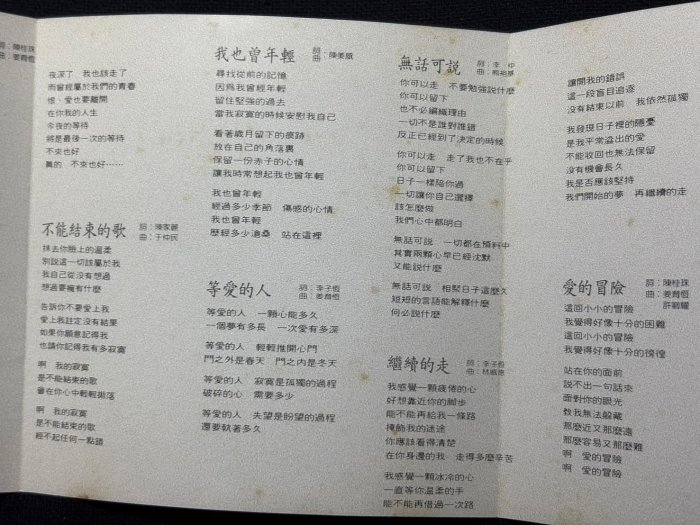 詞：陳桂珠
曲：姜育恆
夜深了　我也該走了
而曾經屬於我們的青春
恨．愛也要離開
在你我的人生
今夜的等待
將是最後一次的等待
不來也好
真的　不來也好……
不能結束的歌
詞：陳家麗
曲：于仲民
抹去你臉上的溫柔
別說這一切該屬於我
我自己從沒有想過
想過要擁有什麼
告訴你不要愛上我
愛上我註定沒有結果
如果你願意記得我
也請你記得我有多寂寞
啊　我的寂寞
是不能結束的歌
會在你心中輕輕拋落
啊　我的寂寞
是不能結束的歌
經不起任何一點錯
我也曾年輕
詞
曲：陳美威
尋找從前的記憶
因為我曾經年輕
留住堅強的過去
當我寂寞的時候安慰我自己
看著歲月留下的痕跡
放在自己的角落裏
保留一份赤子的心情
讓我時常想起我也曾年輕
我也曾年輕
經過多少季節　傷感的心情
我也曾年輕
歷經多少滄桑　站在這裡
等愛的人
詞：李子恆
曲：姜育恆
等愛的人　一顆心能多久
一個夢有多長　一次愛有多深
等愛的人　輕輕推開心門
門之外是春天　門之內是冬天
等愛的人　寂寞是孤獨的過程
破碎的心　需要多少
等愛的人　失望是盼望的過程
還要執著多久
無話可說
詞：李　中
曲：熊裕華
你可以走　不要勉強說什麼
你可以留下
也不必編織理由
一切不是誰對誰錯
反正已經到了決定的時候
你可以走　走了我也不在乎
你可以留下
日子一樣陪你過
一切讓你自己選擇
該怎麼做
我們心中都明白
無話可說　一切都在預料中
其實兩顆心早已經沈默
又能說什麼
無話可說　相聚日子這麼久
短短的言語能解釋什麼
何必說什麼
繼續的走
詞：李子恆
我感覺一顆疲倦的心
好想靠近你的腳步
能不能再給我一條路
掩飾我的迷途
你應該看得清楚
在你身邊的我　走得多麼辛苦
我感覺一顆冰冷的心
一直等你溫柔的手
能不能再借過一次路
讓開我的錯誤
這一段盲目追逐
沒有結束以前　我依然孤獨
我發現日子裡的隱憂
是我平常溢出的愛
不能收回也無法保留
沒有機會長久
我是否應該堅持
我們開始的夢　再繼續的走
愛的冒險
詞：陳桂珠
曲：姜育恆
許願耀
這回小小的冒險
我覺得好像十分的困難
這回小小的冒險
我覺得好像十分的徬徨
站在你的面前
說不出一句話來
面對你的眼光
教我無法躲藏
那麼近又那麼遠
那麼容易又那麼難
啊　愛的冒險
啊　愛的冒險